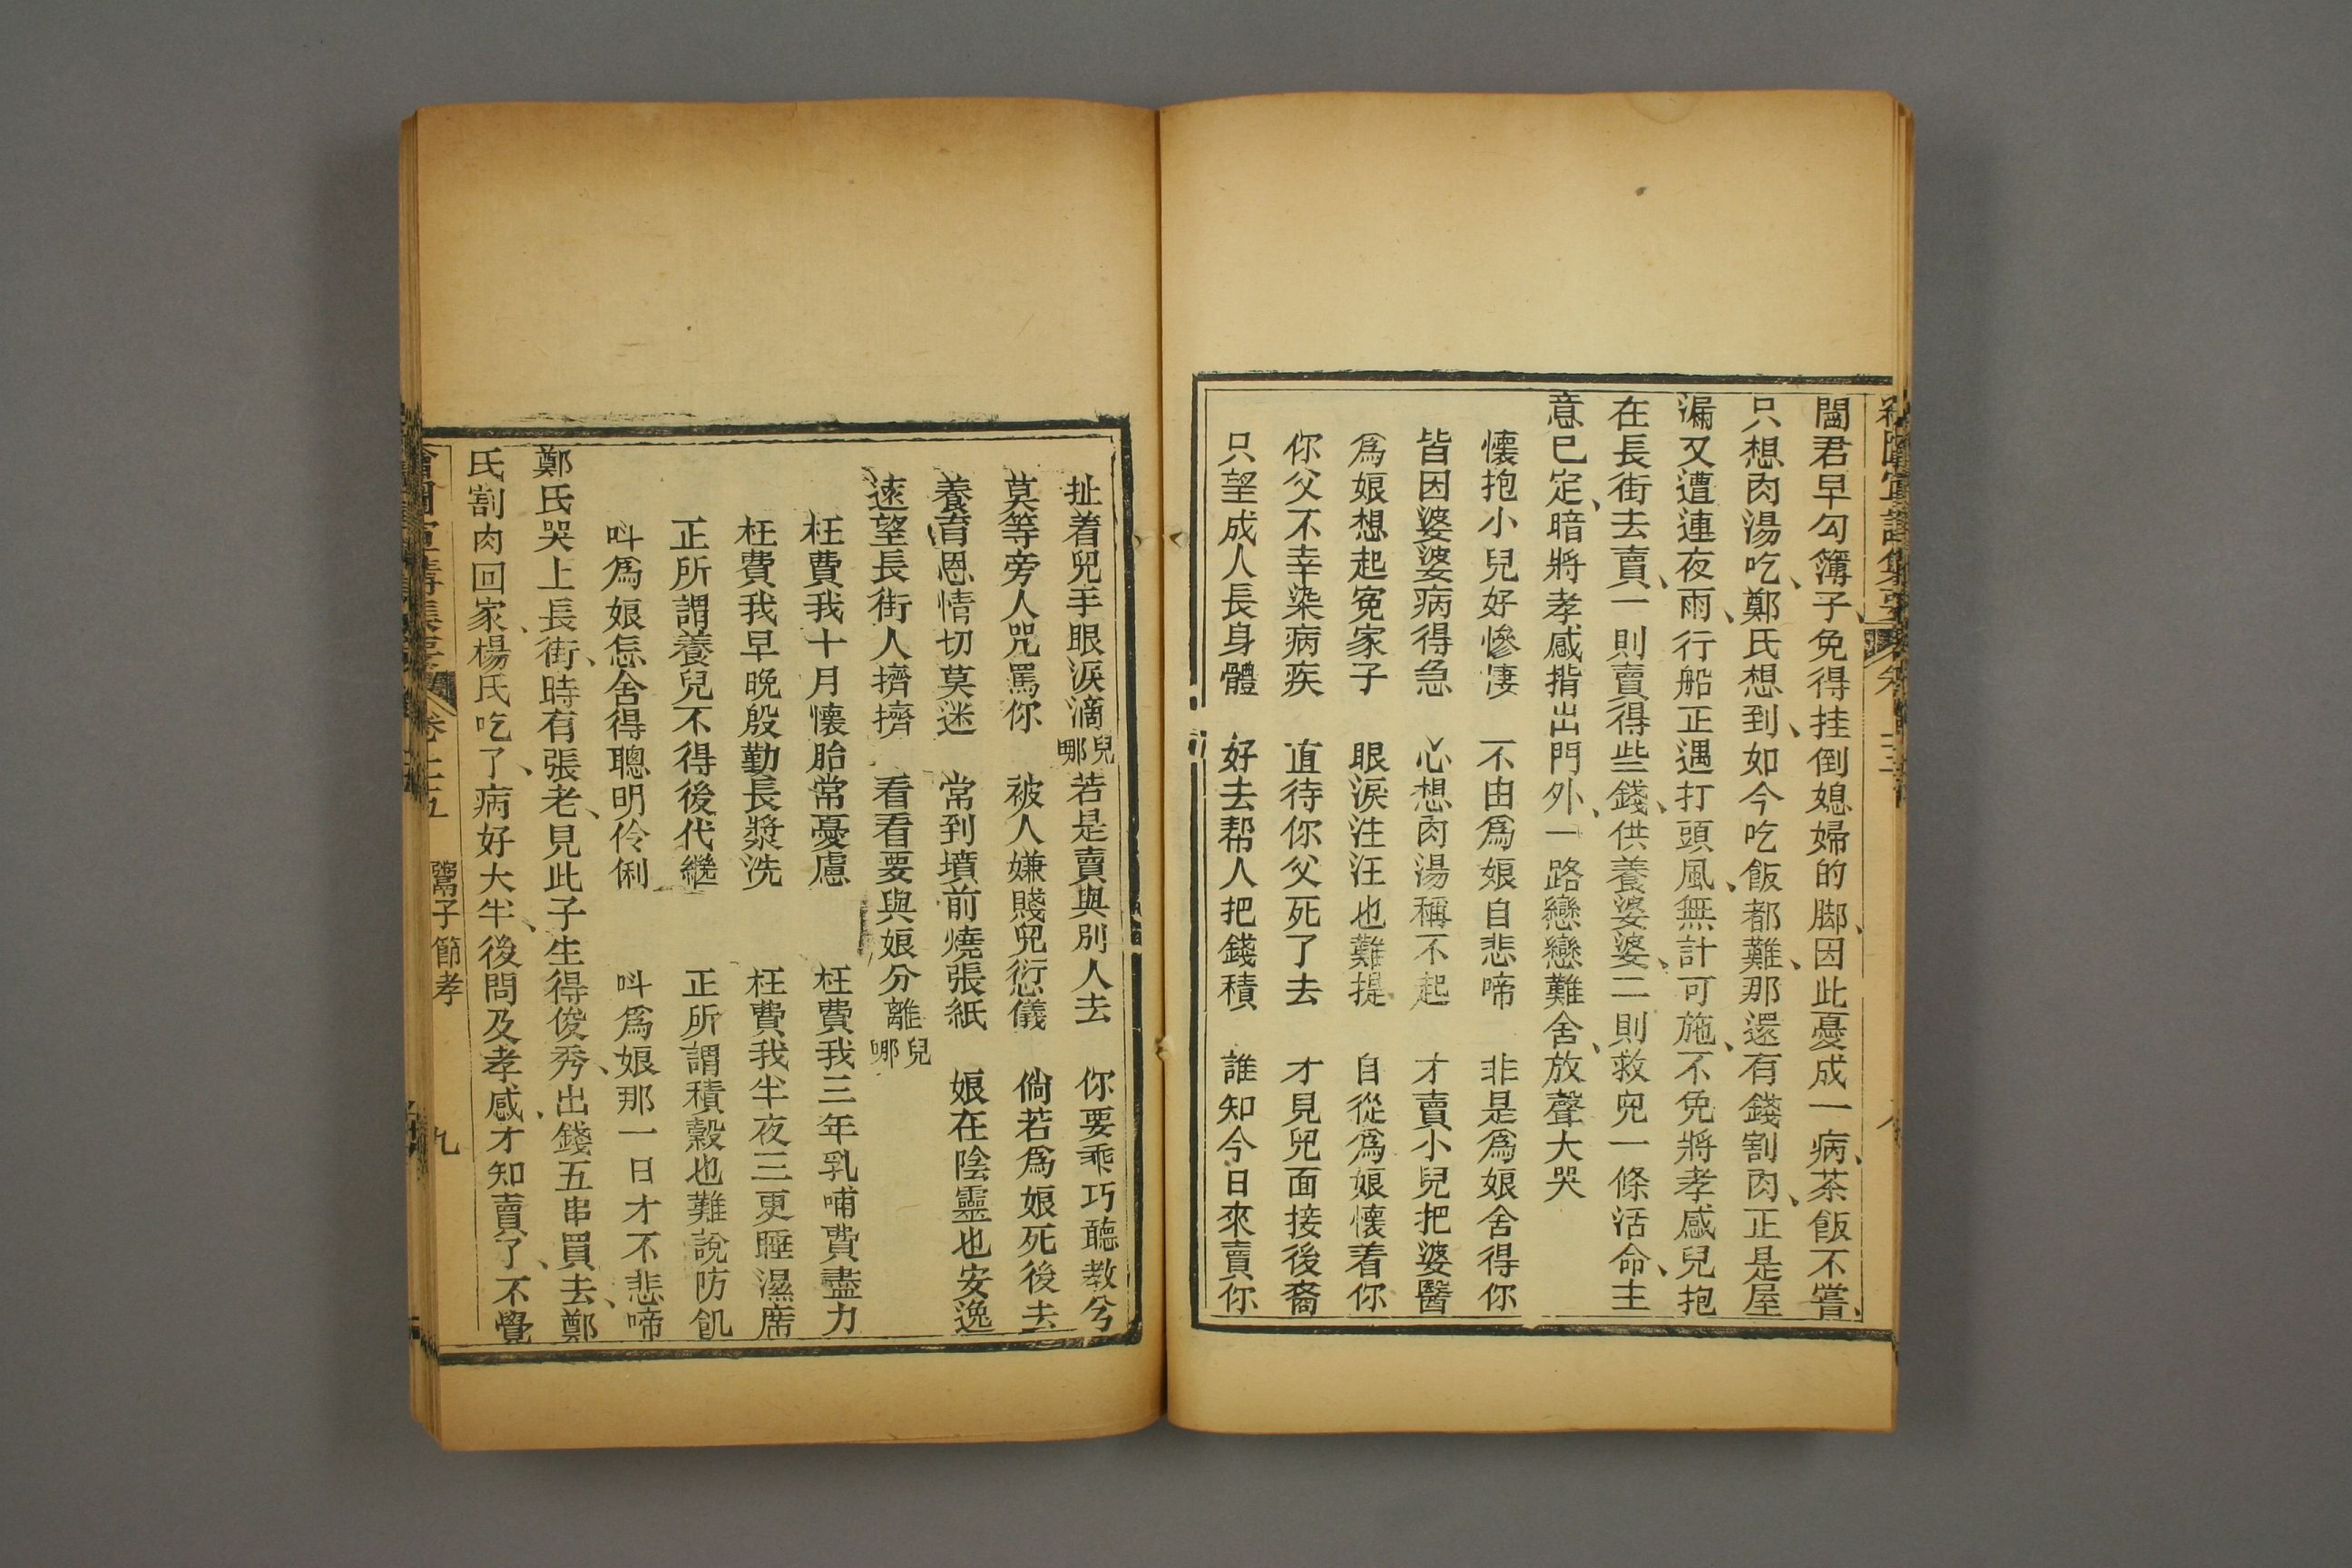 閻君早勾簿子、免得挂倒媳婦的脚、因此憂成一病、茶飯不嘗、
只想肉湯吃、鄭氏想到、如今吃飯都難、那還有錢割肉、正是屋
漏又遭連夜雨、行船正遇打頭風、無計可施、不免將孝感兒抱
在長街去賣、一則賣得些錢、供養婆婆、二則救兒一條活命、主
意已定、暗將孝感揹出門外、一路戀戀難舍、放聲大哭
懷抱小兒好慘悽 不由爲娘自悲啼 非是爲娘舍得你
皆因婆婆病得急 心想肉湯稱不起 才賣小兒把婆醫
爲娘想起冤家子 眼淚汪汪也難提 自從爲娘懷着你
你父不幸染病疾 直待你父死了去 才見兒面接後裔
只望成人長身體 好去帮人把錢積 誰知今日來賣你
扯着兒手眼淚滴兒哪 若是賣與別人去 你要乖巧聽教兮
莫等旁人咒罵你 被人嫌賤兒愆儀 倘若爲娘死後去
養育恩情切莫迷 常到墳前燒張紙 娘在陰靈也安逸
遠望長街人擠擠 看看要與娘分離兒哪
枉費我十月懷胎常憂慮 枉費我三年乳哺費盡力
枉費我早晚殷勤長漿洗 枉費我半夜三更睡濕席
正所謂養兒不得後代繼 正所謂積穀也難說防飢
呌爲娘怎舍得聰明伶俐 呌爲娘那一日才不悲啼
鄭氏哭上長街、時有張老、見此子生得俊秀、出錢五串買去、鄭
氏割肉回家、楊氏吃了、病好大半、後問及孝感、才知賣了、不覺
卷十五 鸞子節孝 九